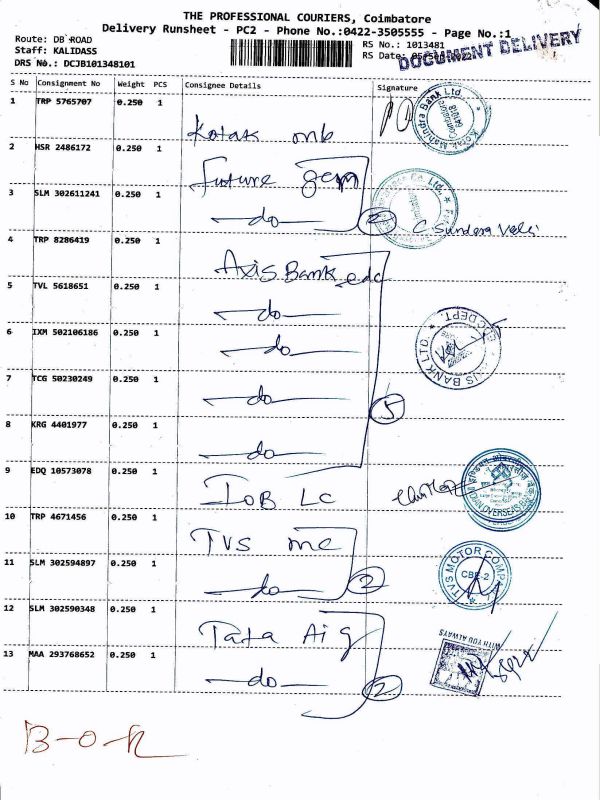 THE PROFESSIONAL COURIERS, Coimbatore
Delivery Runsheet - PC2 - Phone No.:0422-3505555 - Page No.:1
Route: DB ROAD
RS No.: 1013481
Staff: KALIDASS
RS Date:
DOCUMENT DELIVERY
DRS No.: DCJB101348101
S No Consignment No Weight PCS Consignee Details Signature
1 TRP 5765707 0.250 1 Kotak mb
Kotak Mahindra Bank Ltd. Coimbatore
2 HSR 2486172 0.250 1 Future gen
3 SLM 302611241 0.250 1 do 2
C Sundera Veli
4 TRP 8286419 0.250 1 Axis Bank edc
5 TVL 5618651 0.250 1 do
6 IXM 502106186 0.250 1 do
AXIS BANK LTD. EDC DEPT.
7 TCG 50230249 0.250 1 do
5
8 KRG 4401977 0.250 1 do
9 EDQ 10573078 0.250 1 IOB LC
INDIAN OVERSEAS BANK
10 TRP 4671456 0.250 1 TVS mc
11 SLM 302594897 0.250 1 do 2
TVS MOTOR COMP CBE-2
12 SLM 302590348 0.250 1 Tata Aig
WITH YOU ALWAYS
13 MAA 293768652 0.250 1 do 2
B-O-R